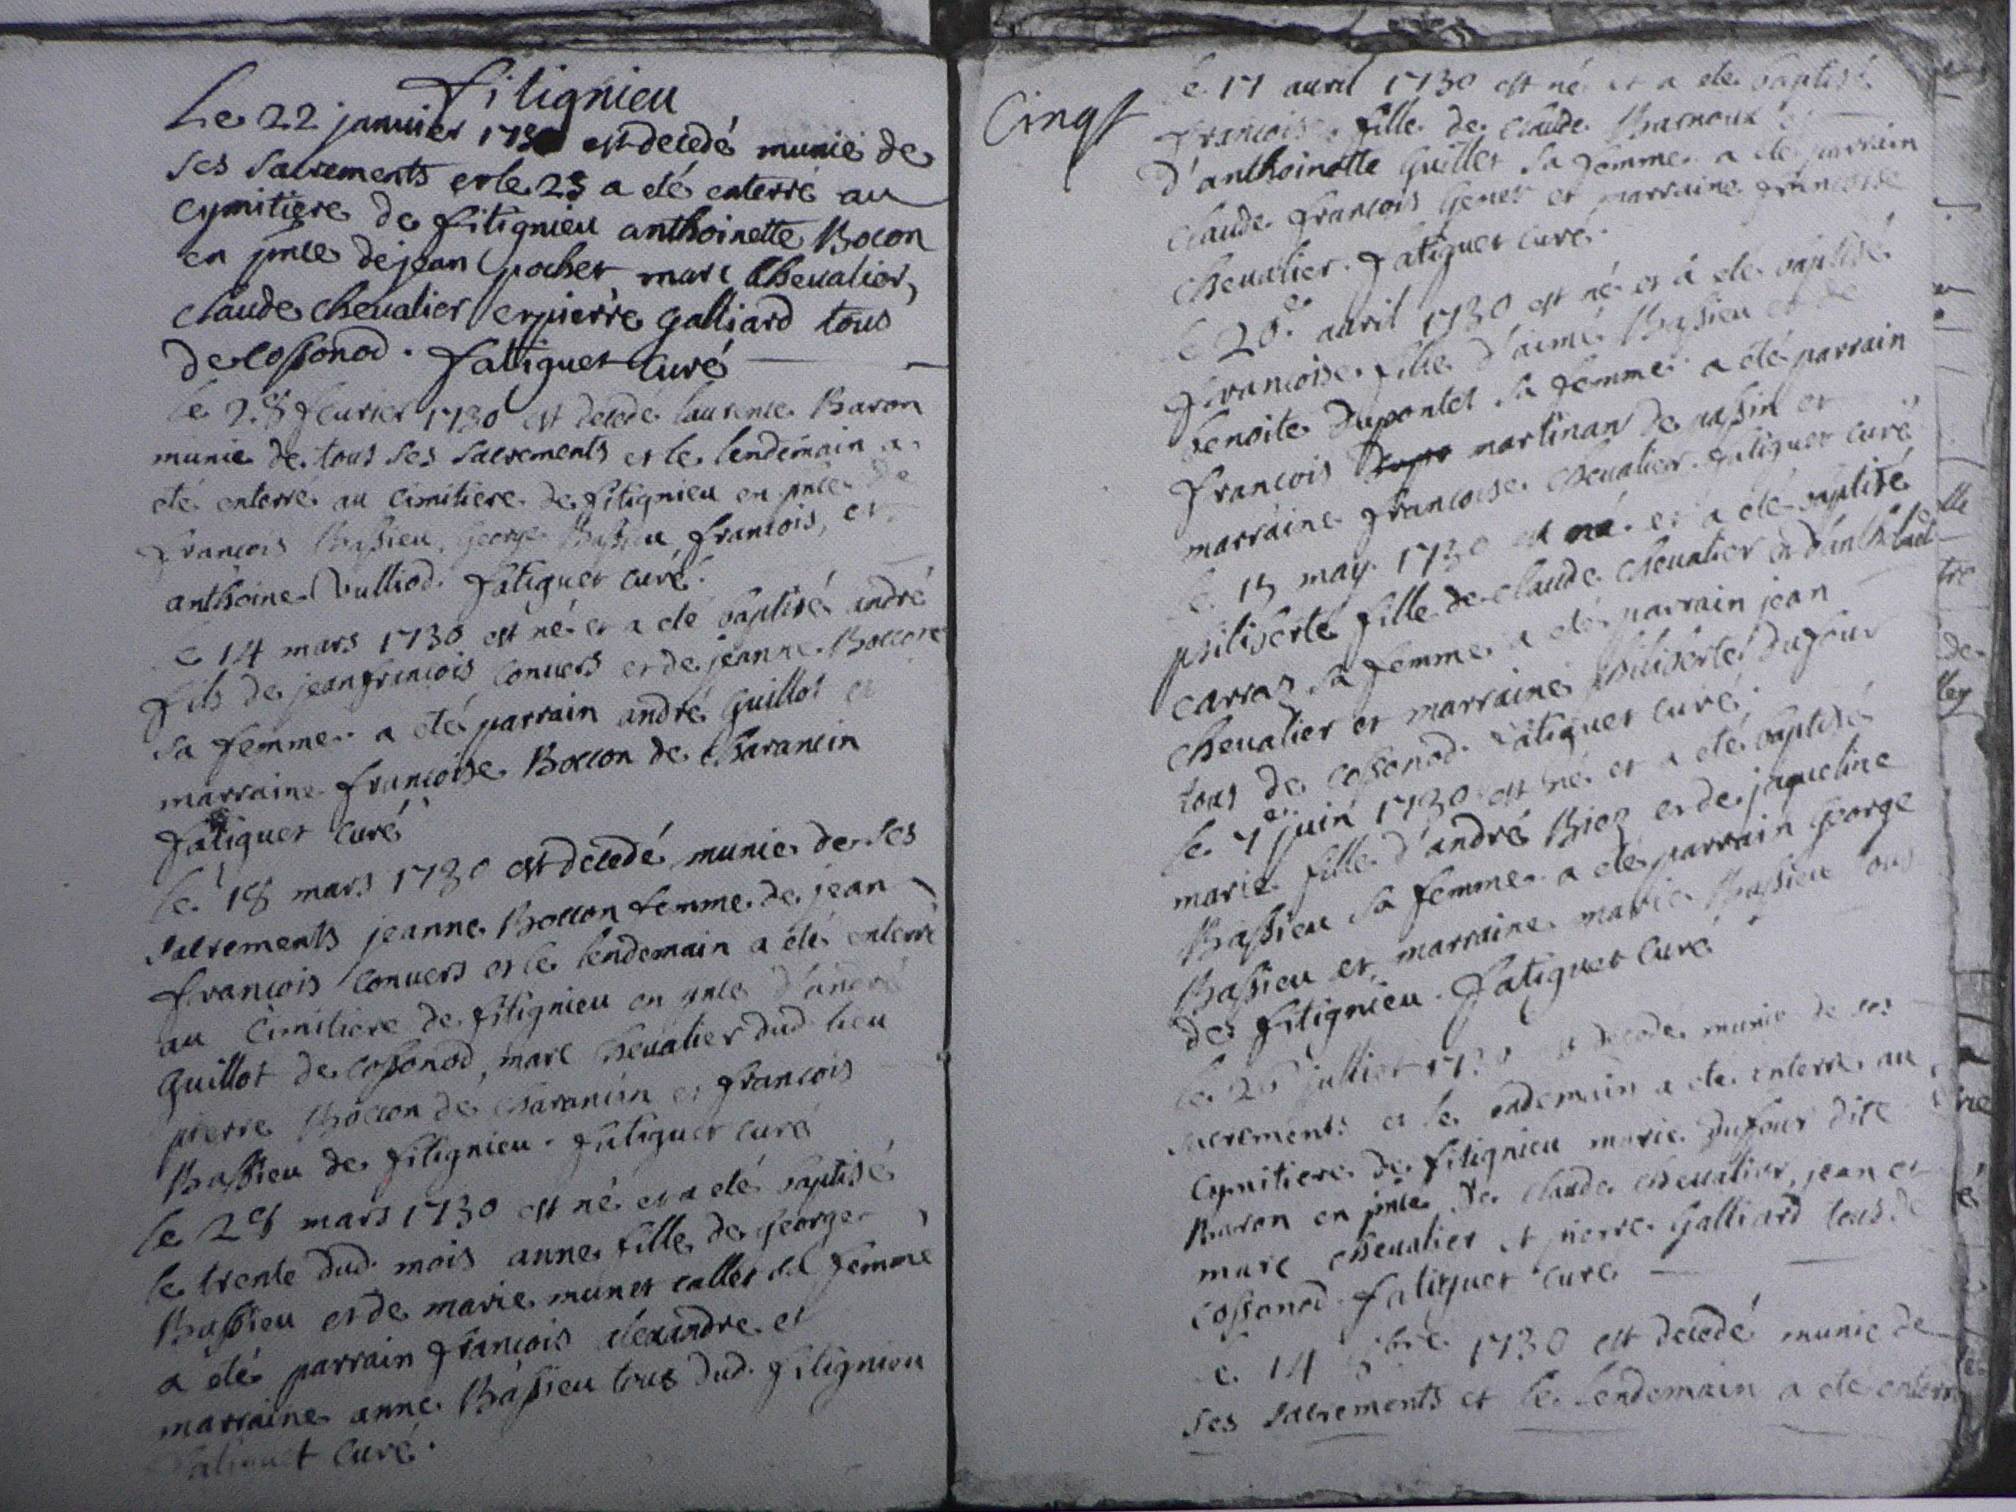 fitignieu
Le 22 janvier 1730 est decedé munie de
ses sacrements et le 23 a eté enterré au
cymitiere de fitignieu anthoinette Bocon
en pnce de jean pochet, marc chevalier,
claude chevalier et pierre Galliard tous
de cossonod. fatiguet curé
le 28 fevrier 1730 est decedé laurence Baron
munie de tous ses sacrements et le lendemain a
eté enterré au cimitiere de fitignieu en pnce de
françois Bassieu, George Bassieu françois, et
anthoine Vulliod. fatiguet curé.
le 14 mars 1730 est né et a eté baptisé andré
fils de jean françois Convers et de jeanne Boccon
sa femme a eté parrain andré Guillot et
marraine françoise Boccon de charancin
fatiguet curé
le 18 mars 1730 est decedé munie de ses
sacrements jeanne Boccon femme de jean
françois Convers et le lendemain a eté enterré
au cimitiere de fitignieu en pnce d'andré
Guillot de cossonod, marc chevalier dud. lieu
pierre Boccon de charancin et françois
Bassieu de fitignieu. fatiguet curé
le 28 mars 1730 est né et a eté baptisé
le trente dud. mois anne fille de George
Bassieu et de marie munet callet sa femme
a eté parrain françois alexandre et
marraine anne Bassieu tous dud. fitignieu
fatiguet curé.
Cinqt
le 17 avril 1730 est né et a eté baptisé
françoise fille de claude Barnoux et
d'anthoinette Guillet sa femme a eté parrain
claude françois Genet et marraine françoise
chevalier. fatiguet curé.
le 20e avril 1730 est né et a eté baptisé
françoise fille d'aimé Bassieu et de
benoite dupontet sa femme a eté parrain
françois martinan de passin et
marraine françoise chevalier. fatiguet curé
le 15 may 1730 est né et a eté baptisé
philiberte fille de claude chevalier et d'anthelmde
carraz sa femme a eté parrain jean
chevalier et marraine philiberte dufour
tous de cossonod. fatiguet curé.
le 1er juin 1730 est né et a eté baptisé
marie fille d'andré Bioz et de jaqueline
Bassieu sa femme a eté parrain George
Bassieu et marraine marie Bassieu tous
de fitignieu. fatiguet curé
le 26 julliet 1730 est decedé munie de ses
sacrements et le endemain a eté enterré au
cymitiere de fitignieu marie dufour dite
Baron en pnce de claude chevalier, jean et
marc chevalier et pierre Galliard tous de
cossonod. fatiguet curé
le 14 1730 est decedé munie de
ses sacrements et le lendemain a eté enterré